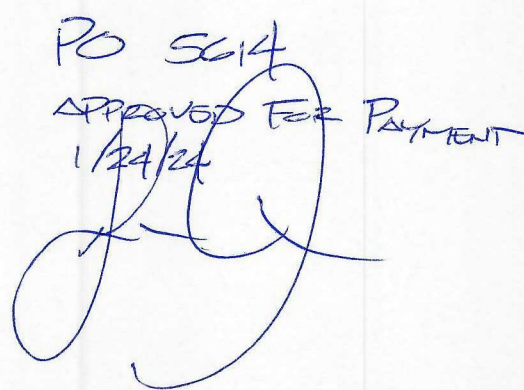 PO 5614
APPROVED FOR PAYMENT
1/24/24